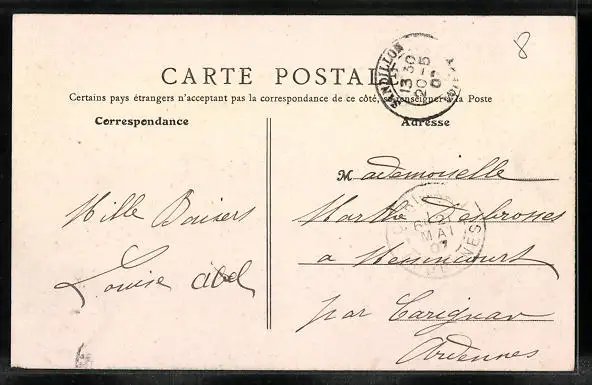 8
CARTE POSTALE
Certains pays étrangers n'acceptent pas la correspondance de ce côté, se renseigner à la Poste
Correspondance
Adresse
13 30
20-5
07
Mademoiselle
Marthe Desbrosses
a Messincourt
par Carignan
Ardennes
Mille Baisers
Louise Abel
MAI
07